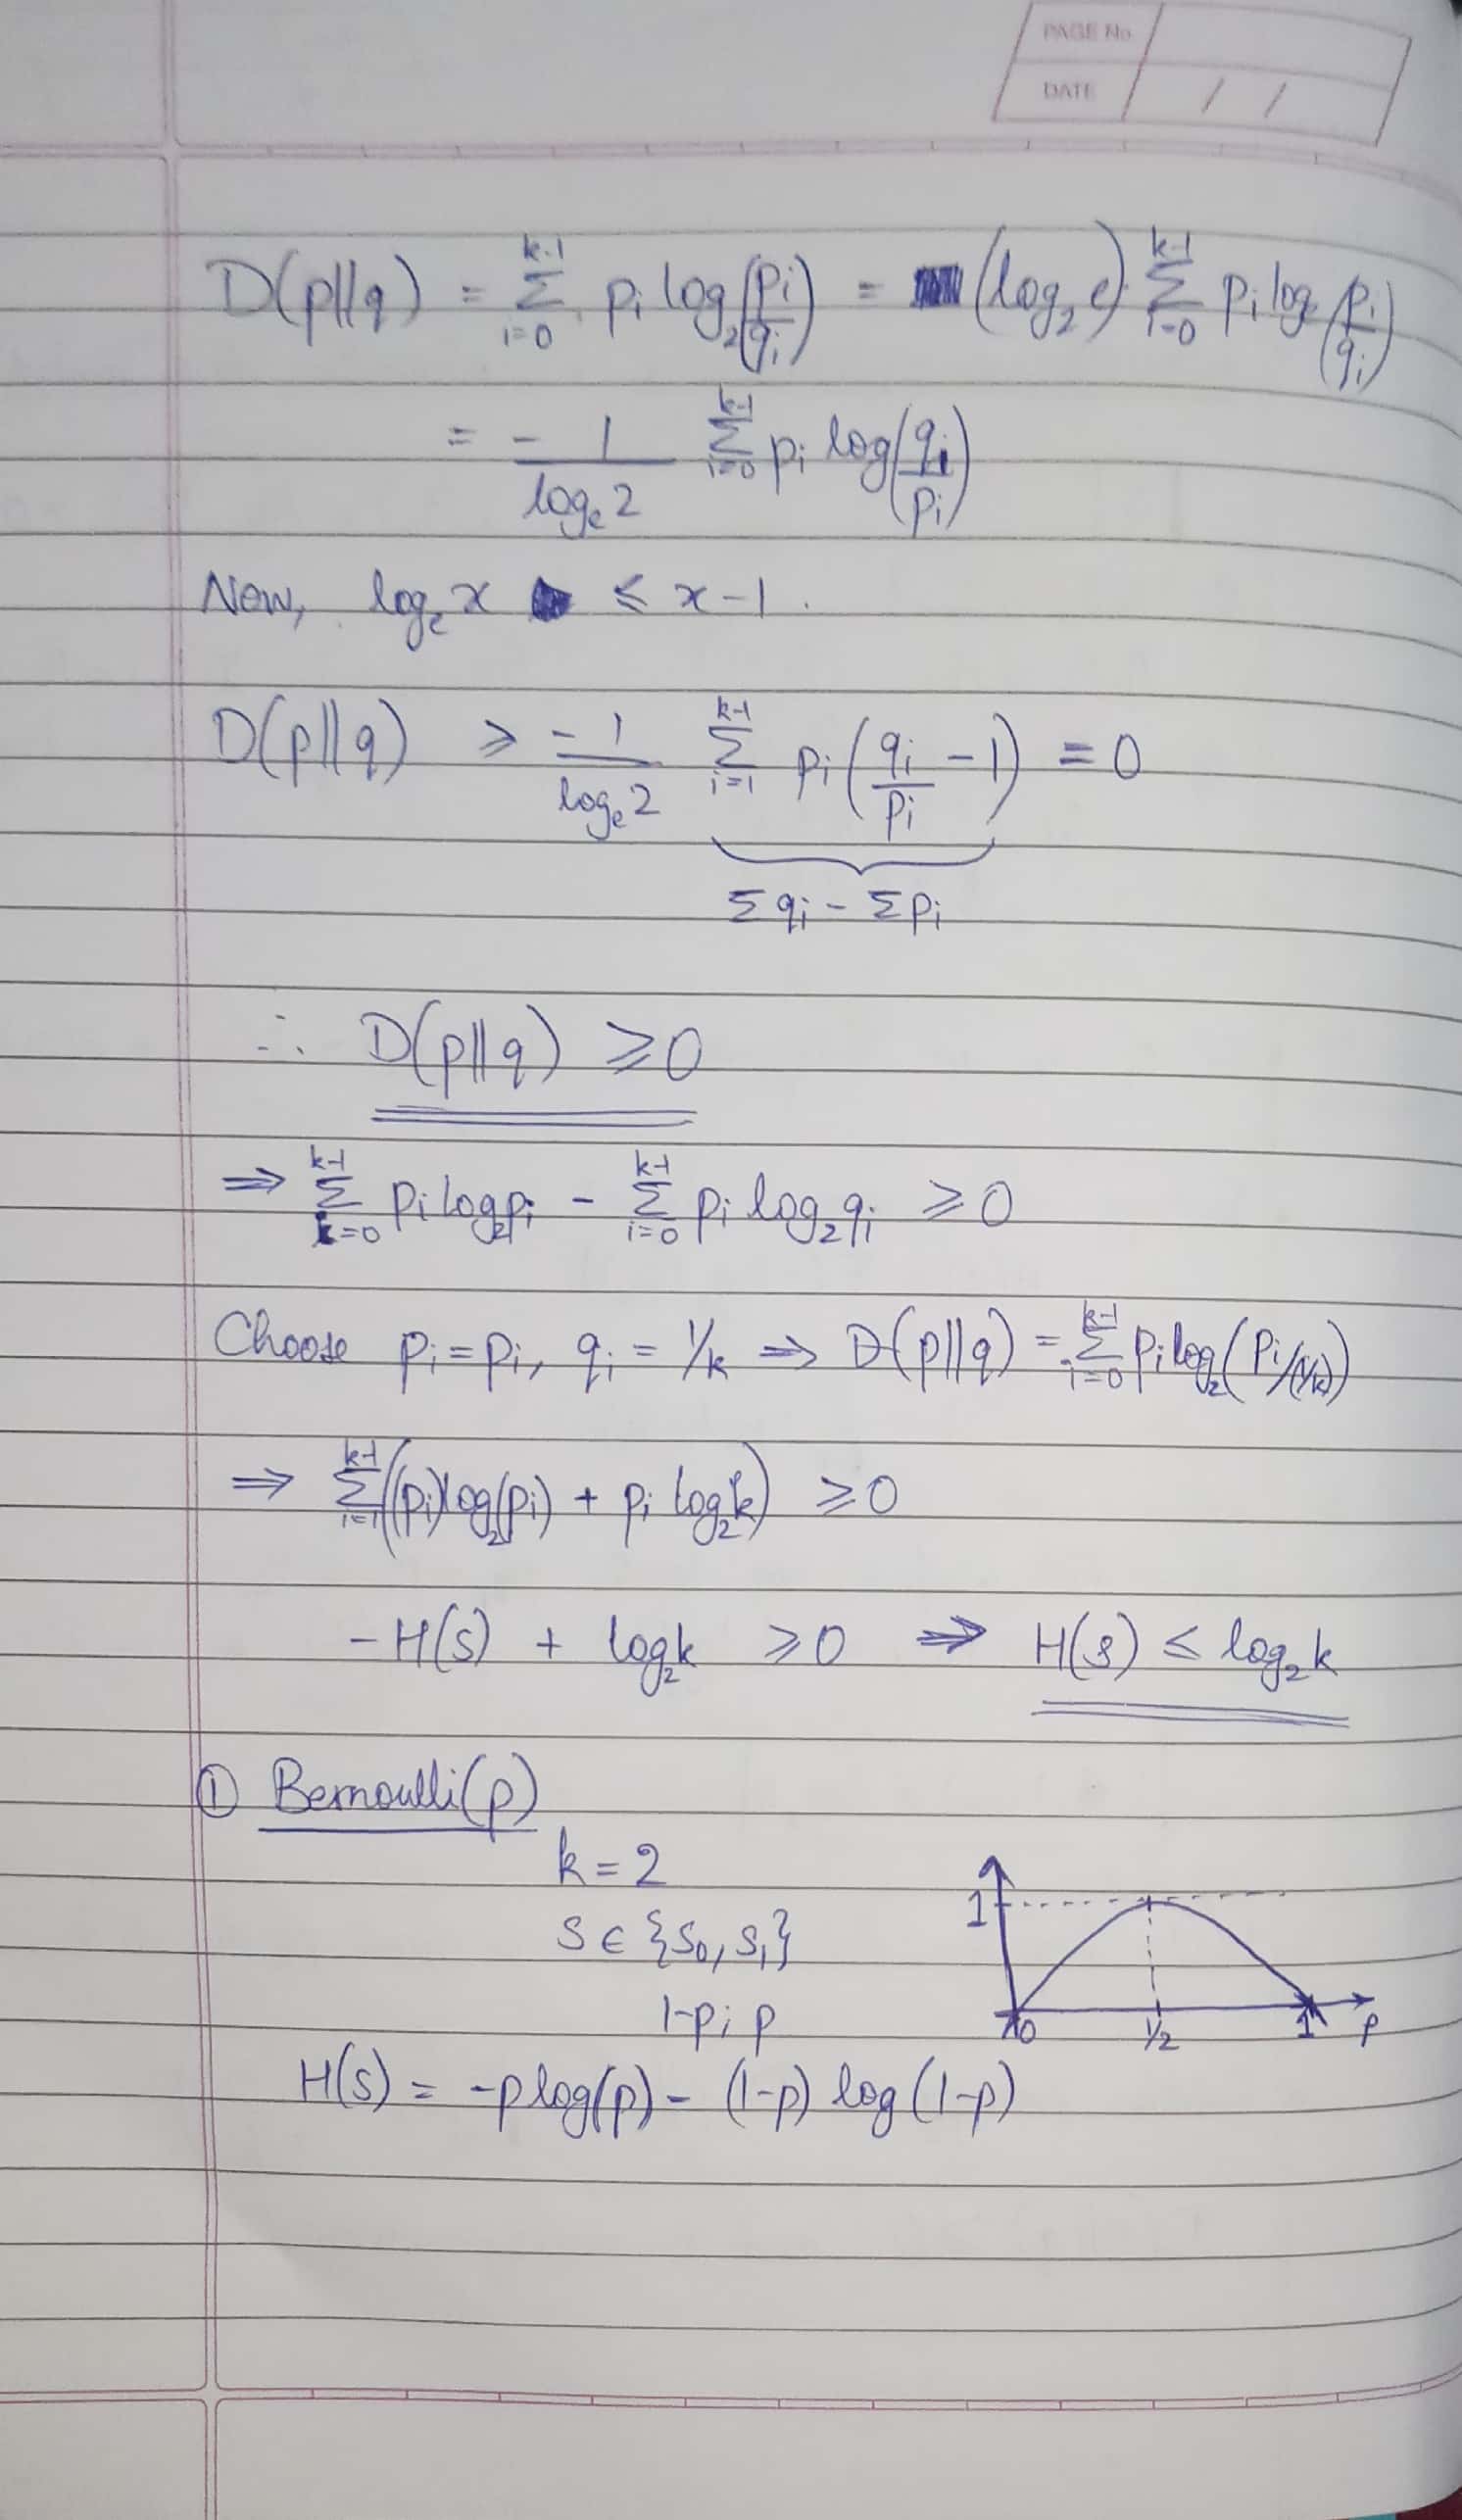 PAGE No.
DATE / /
D(p||q) = Σ_{i=0}^{k-1} p_i log_2(p_i/q_i) = (log_2 e) Σ_{i=0}^{k-1} p_i log(p_i/q_i)
= -1/(log_e 2) Σ_{i=0}^{k-1} p_i log(q_i/p_i)
Now, log_e x ≤ x-1.
D(p||q) ≥ -1/(log_e 2) Σ_{i=1}^{k-1} p_i(q_i/p_i - 1) = 0
Σq_i - Σp_i
∴ D(p||q) ≥ 0
⇒ Σ_{i=0}^{k-1} p_i log_2 p_i - Σ_{i=0}^{k-1} p_i log_2 q_i ≥ 0
Choose p_i = p_i, q_i = 1/k ⇒ D(p||q) = Σ_{i=0}^{k-1} p_i log_2(p_i/(1/k))
⇒ Σ_{i=1}^{k-1} ((p_i) log_2(p_i) + p_i log_2 k) ≥ 0
-H(S) + log_2 k ≥ 0 ⇒ H(S) ≤ log_2 k
① Bernoulli(p)
k = 2
S ∈ {s_0, s_1}
1-p; p
1
0 1/2 1 p
H(S) = -p log(p) - (1-p) log (1-p)